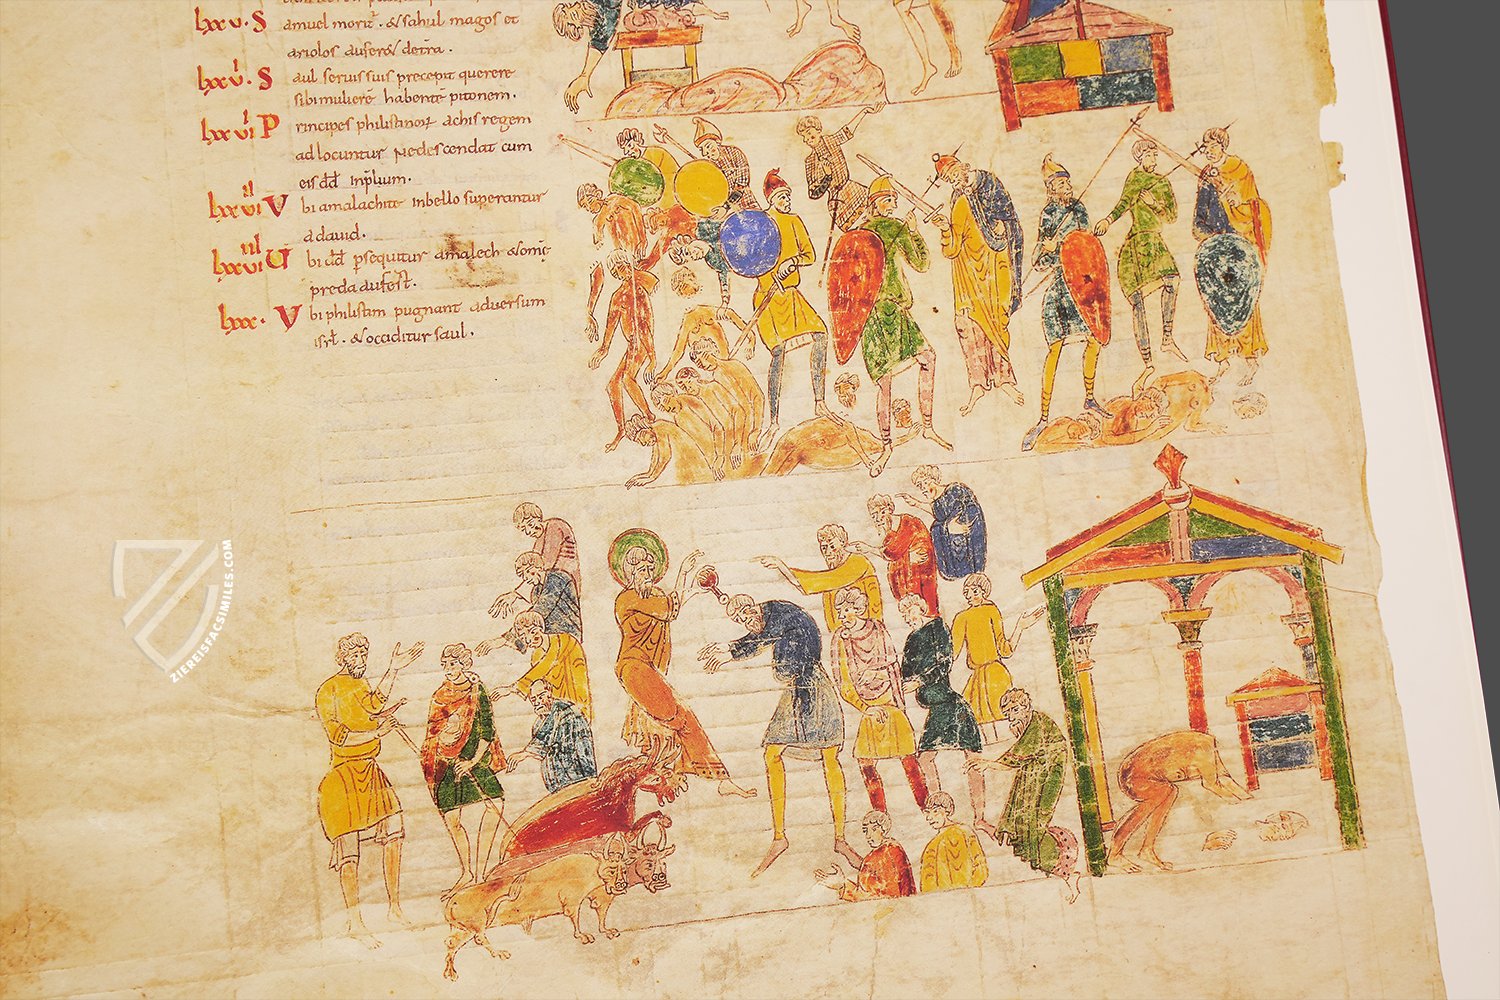 lxxv. S amuel moritur. & sahul magos et
ariolos aufert de terra.
lxxvi. S aul seruis suis precepit querere
sibi mulierē habentē pitonem.
lxxvii P rincipes philistinorum achis regem
ad locuntur ne descendat cum
eis dd̄ in plium.
lxxviii V bi amalachite in bello superantur
a dauid.
lxxviiii U bi dd̄ persequitur amalech & omnē
preda aufert.
lxxx. V bi philistim pugnant aduersum
isrl̄. & occiditur saul.
ZIEREISFACSIMILES.COM